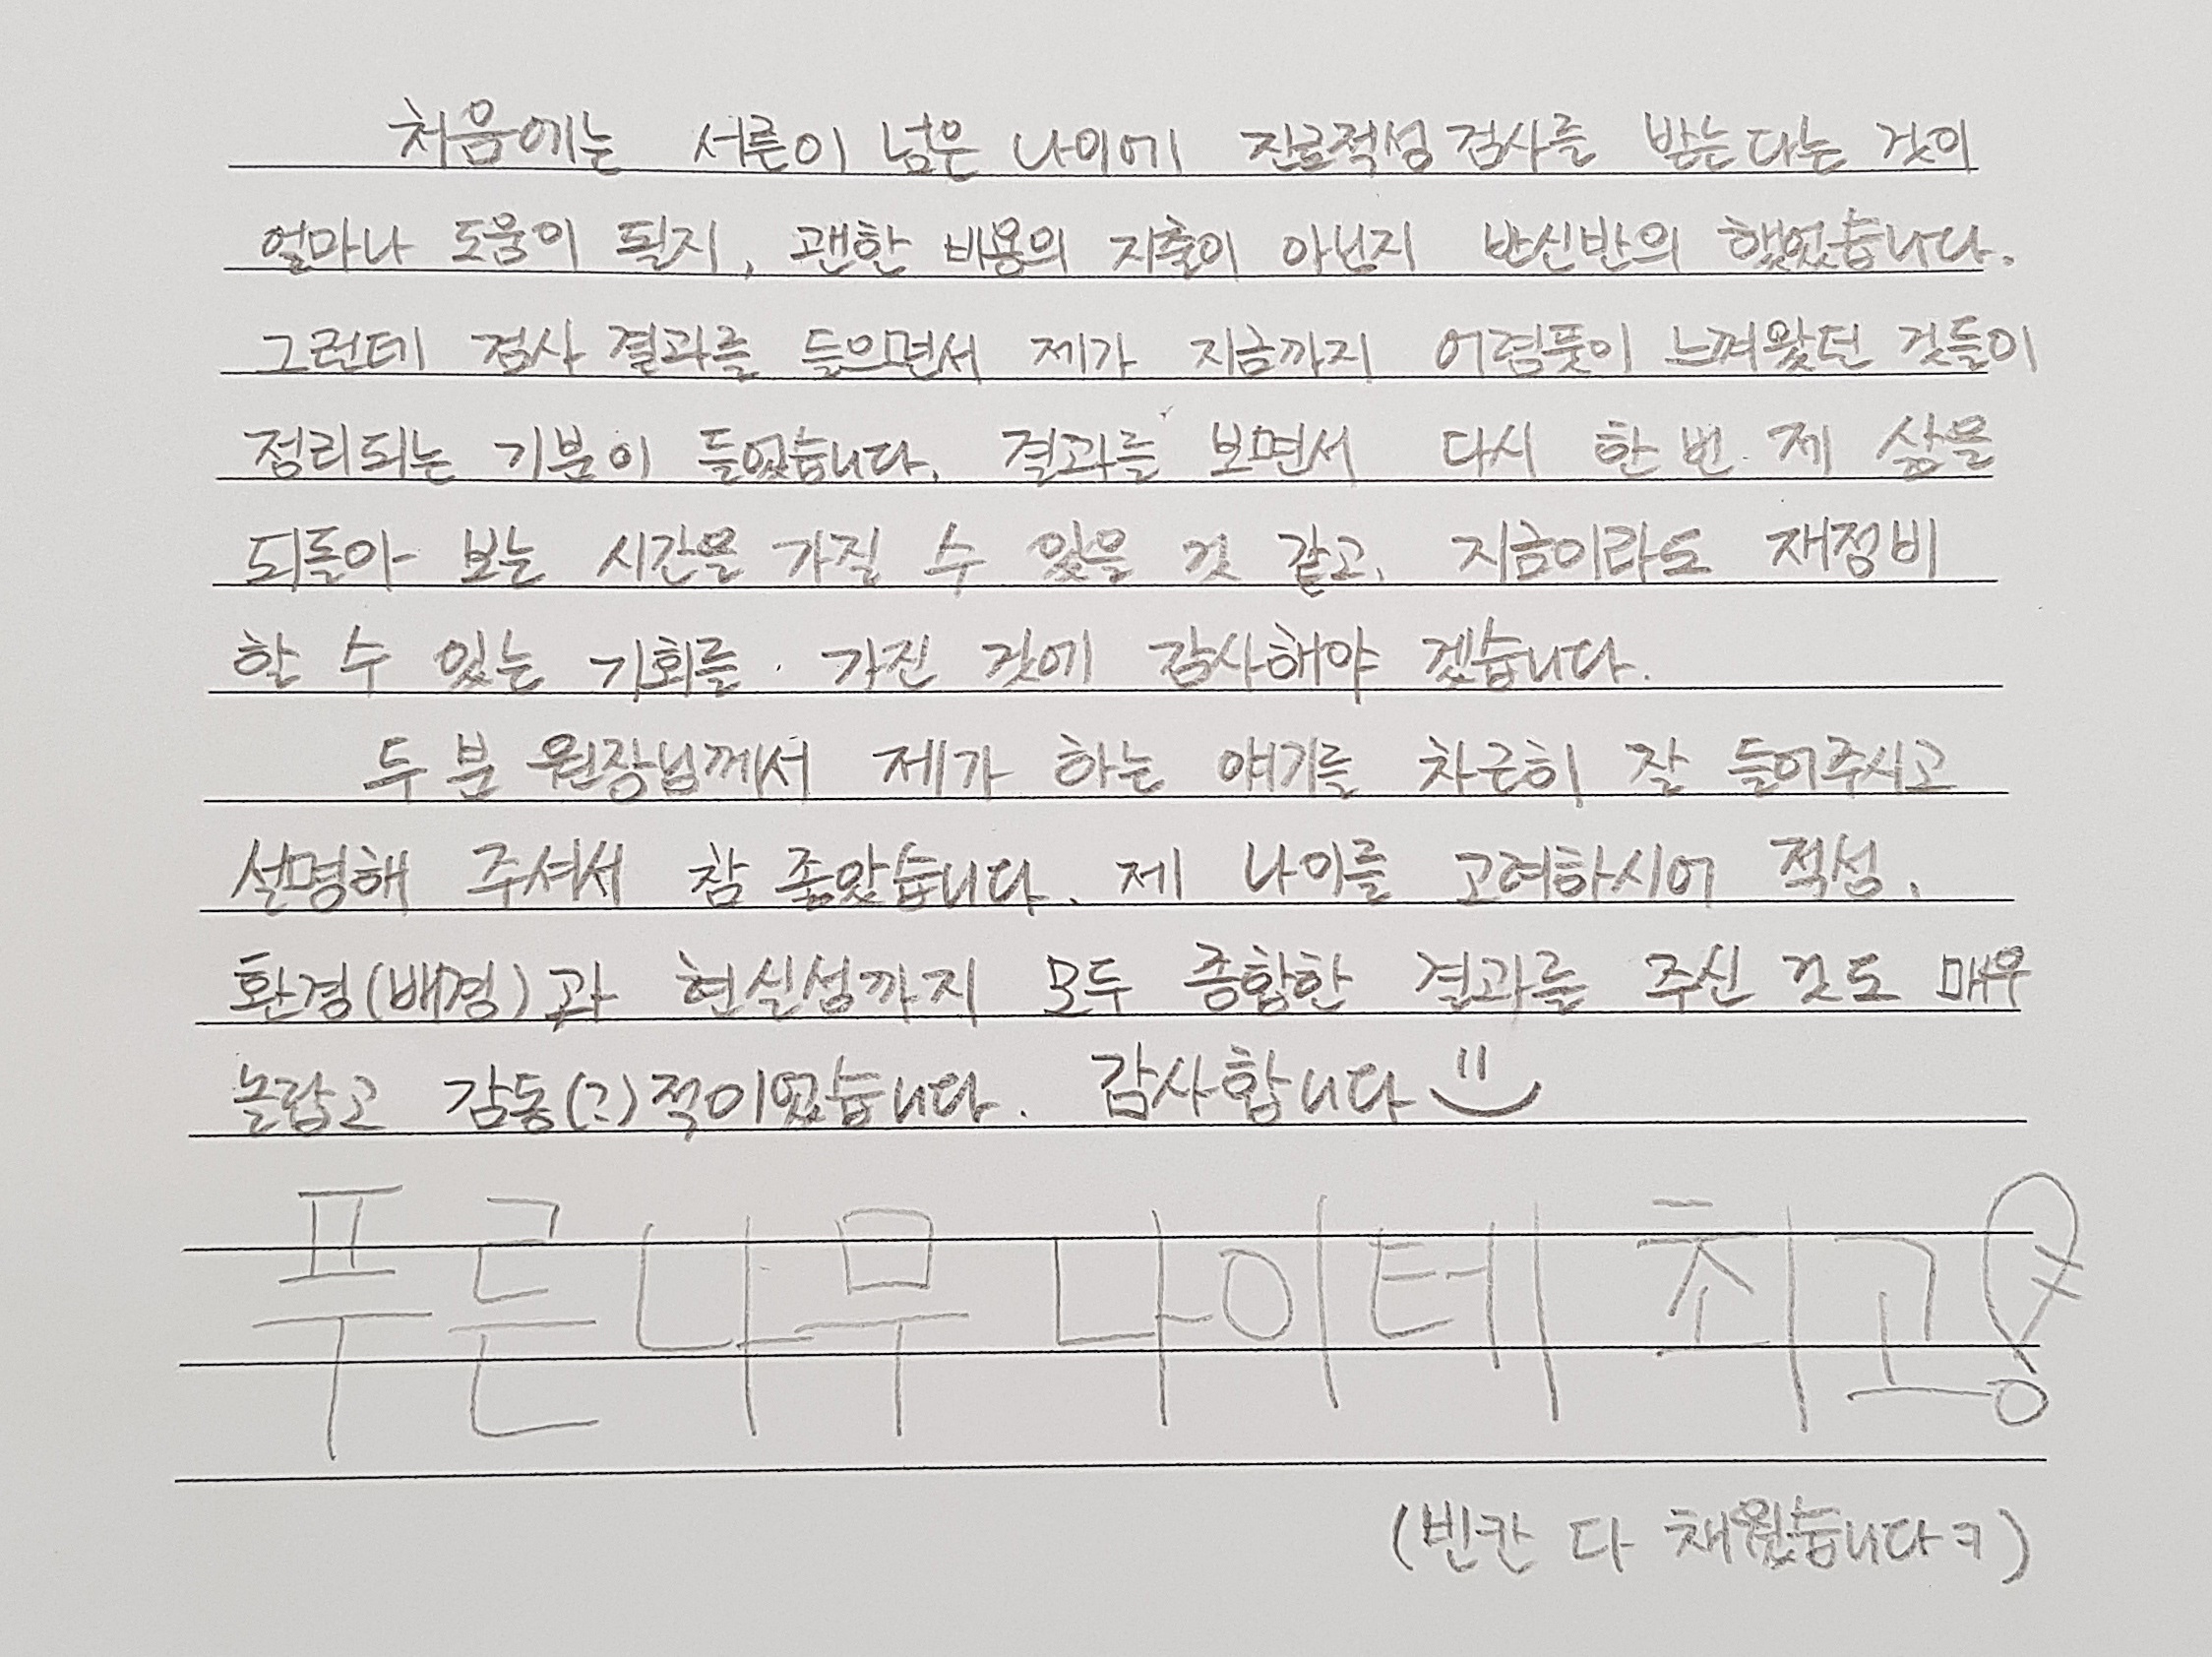 처음에는 서른이 넘은 나이에 진로적성검사를 받는다는 것이
얼마나 도움이 될지, 괜한 비용의 지출이 아닌지 반신반의 했었습니다.
그런데 검사 결과를 들으면서 제가 지금까지 어렴풋이 느껴왔던 것들이
정리되는 기분이 들었습니다. 결과를 보면서 다시 한번 제 삶을
되돌아 보는 시간을 가질 수 있을 것 같고, 지금이라도 재정비
할 수 있는 기회를 가진 것에 감사해야 겠습니다.
두 분 원장님께서 제가 하는 얘기를 차근히 잘 들어주시고
설명해 주셔서 참 좋았습니다. 제 나이를 고려하시어 적성,
환경(배경)과 현실성까지 모두 종합한 결과를 주신 것도 매우
놀랍고 감동(?)적이었습니다. 감사합니다
푸른나무 나이테 최고!
(빈칸 다 채웠습니다ㅋ)